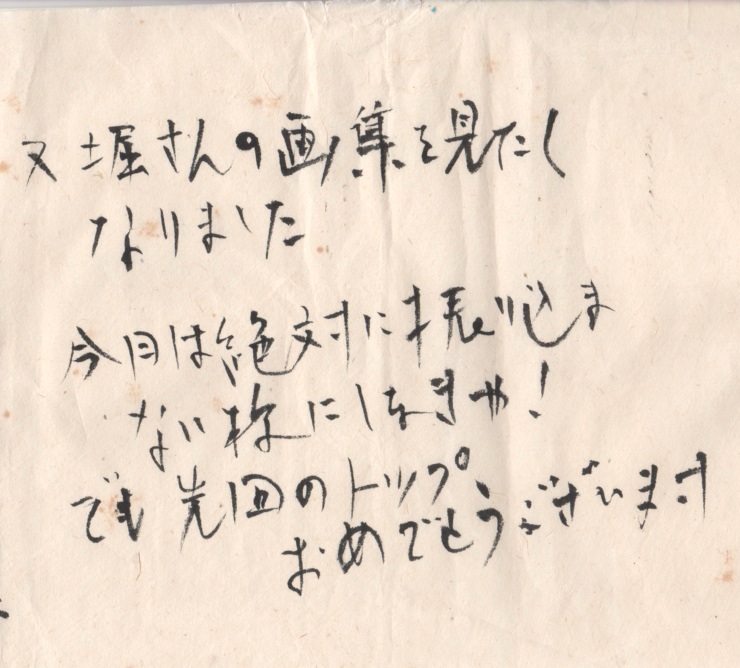 又堀さんの画集を見たく
なりました
今日は絶対に振り込ま
ない様にしなきゃ!
でも先回のトップ
おめでとうございます